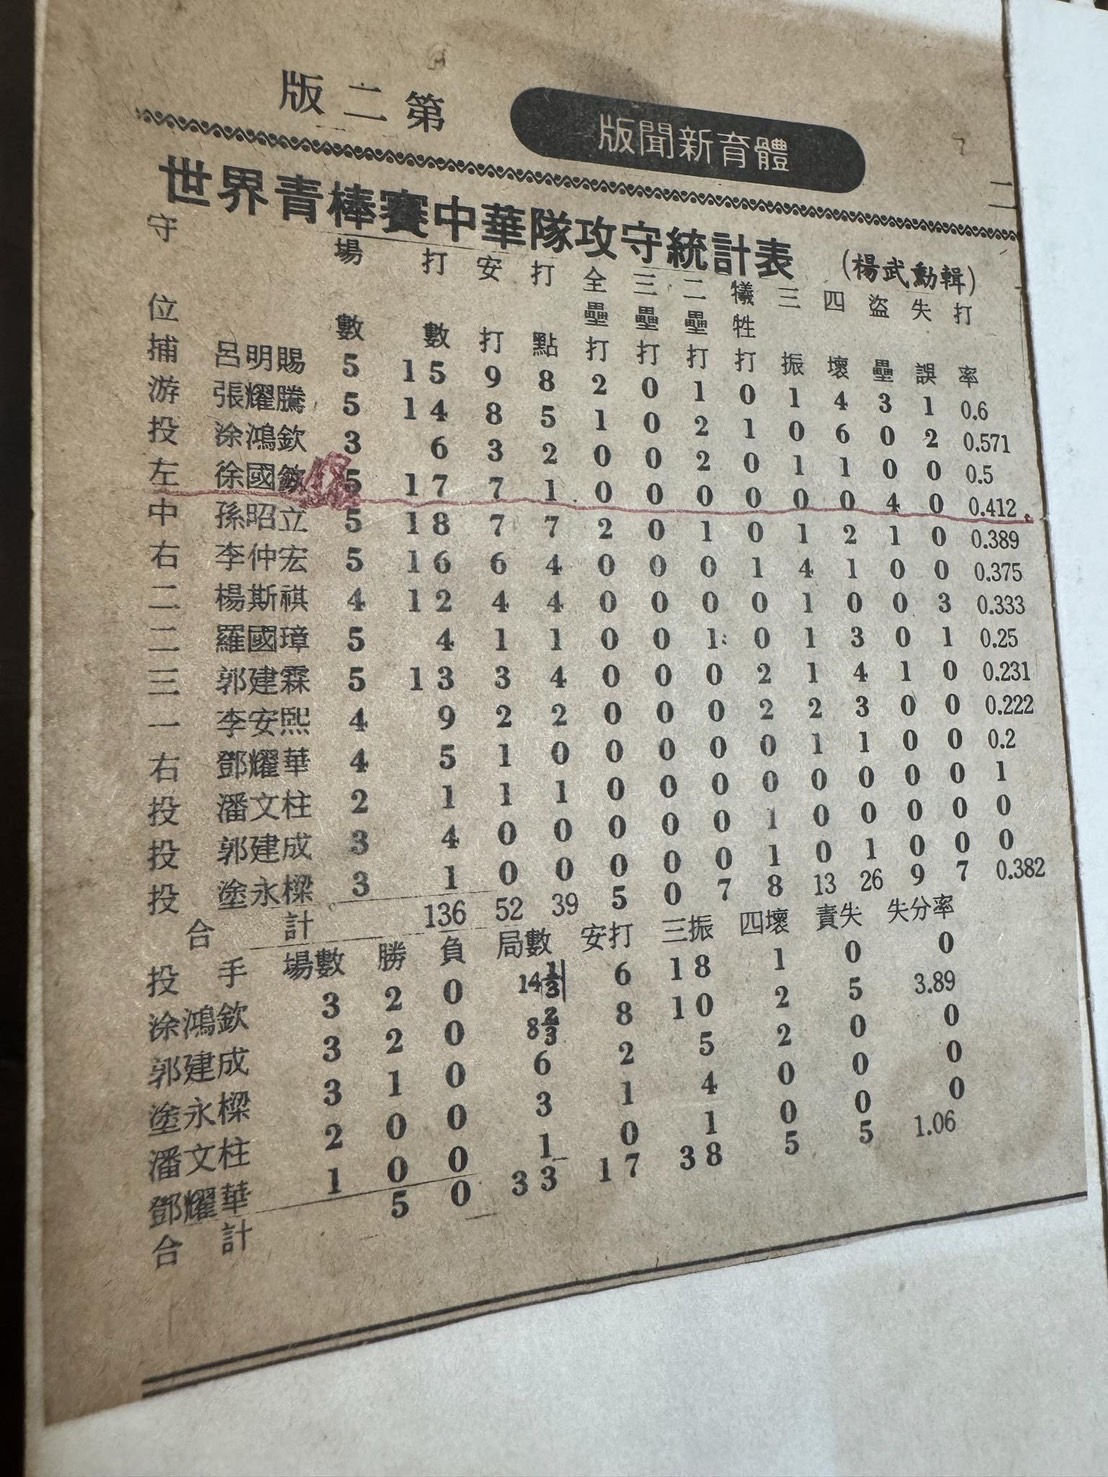 第二版
體育新聞版
二
世界青棒賽中華隊攻守統計表 (楊武勳輯)
守位 場數 打數 安打 打點 全壘打 三壘打 二壘打 犧牲打 三振 四壞 盜壘 失誤 打率
捕 呂明賜 5 15 9 8 2 0 1 0 1 4 3 1 0.6
游 張耀騰 5 14 8 5 1 0 2 1 0 6 0 2 0.571
投 涂鴻欽 3 6 3 2 0 0 2 0 1 1 0 0 0.5
左 徐國欽 5 17 7 1 0 0 0 0 0 0 4 0 0.412
中 孫昭立 5 18 7 7 2 0 1 0 1 2 1 0 0.389
右 李仲宏 5 16 6 4 0 0 0 1 4 1 0 0 0.375
二 楊斯祺 4 12 4 4 0 0 0 0 1 0 0 3 0.333
二 羅國璋 5 4 1 1 0 0 1 0 1 3 0 1 0.25
三 郭建霖 5 13 3 4 0 0 0 2 1 4 1 0 0.231
一 李安熙 4 9 2 2 0 0 0 2 2 3 0 0 0.222
右 鄧耀華 4 5 1 0 0 0 0 0 1 1 0 0 0.2
投 潘文柱 2 1 1 1 0 0 0 0 0 0 0 0 1
投 郭建成 3 4 0 0 0 0 0 1 0 0 0 0 0
投 塗永樑 3 1 0 0 0 0 0 1 0 1 0 0 0
合計 136 52 39 5 0 7 8 13 26 9 7 0.382
投手 場數 勝 負 局數 安打 三振 四壞 責失 失分率
涂鴻欽 3 2 0 14 1/3 6 18 1 0 0
郭建成 3 2 0 8 2/3 8 10 2 5 3.89
塗永樑 3 1 0 6 2 5 2 0 0
潘文柱 2 0 0 3 1 4 0 0 0
鄧耀華 1 0 0 1 0 1 0 0 0
合計 5 0 33 17 38 5 5 1.06